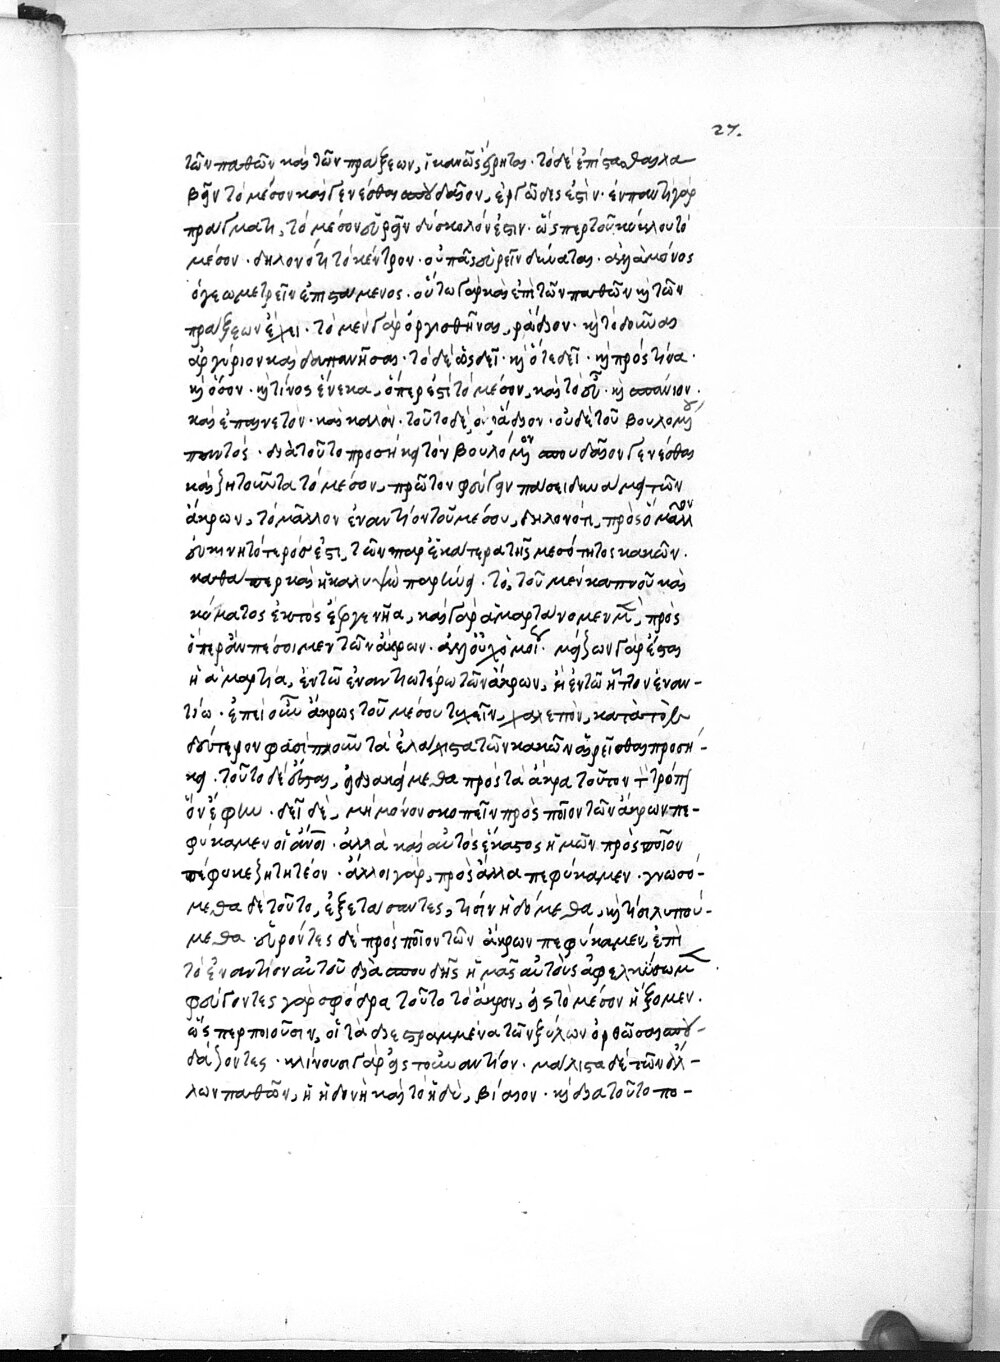 27.
τῶν παθῶν καὶ τῶν πράξεων, ἱκανῶς εἴρηται· τὸ δὲ ἐπίστασθαι λα
βεῖν τὸ μέσον καὶ γενέσθαι σπουδαῖον, ἐργῶδες ἐστὶν· ἐν παντὶ γὰρ
πράγματι, τὸ μέσον εὑρεῖν δύσκολόν ἐστιν· ὥσπερ τοῦ κύκλου τὸ
μέσον· δηλονότι τὸ κέντρον· οὐ πᾶς εὑρεῖν δύναται· ἀλλὰ μόνος
ὁ γεωμετρεῖν ἐπιστάμενος· οὕτω γὰρ καὶ ἐπὶ τῶν παθῶν κỳ τῶν
πράξεων ἔχει· τὸ μὲν γὰρ ὀργισθῆναι, ῥάδιον· κỳ τὸ δοῦναι
ἀργύριον καὶ δαπανῆσαι· τὸ δὲ ὡς δεῖ· κỳ ὅτε δεῖ· κỳ πρός τινα·
κỳ ὅσον· κỳ τίνος ἕνεκα, ὅπερ ἐστὶ τὸ μέσον, καὶ τὸ εὖ· κỳ σπάνιον·
καὶ ἐπαινετὸν· καὶ καλὸν· τοῦτο δὲ οὐ ῥάδιον· οὐδὲ τοῦ βουλομένου
παντός· διὰ τοῦτο προσήκει τὸν βουλόμενον σπουδαῖον γενέσθαι
καὶ ζητοῦντα τὸ μέσον, πρῶτον φεύγειν πάσει δυνάμει τῶν
ἄκρων, τὸ μᾶλλον ἐναντίον τοῦ μέσου, δηλονότι, πρὸς ὃ μᾶλλον
εὐκινητότερός ἐστι, τῶν παρ' ἑκάτερα τῆς μεσότητος κακῶν·
καθάπερ καὶ ἡ καλυψὼ παραινεῖ· τὸ, τοῦ μὲν καπνοῦ καὶ
κύματος ἐκτὸς ἔεργε νῆα, καὶ γὰρ ἁμαρτάνομεν μὲν, πρὸς
ὅπερ ἂν πέσοιμεν τῶν ἄκρων· ἀλλ' οὐχ ὁμοίως· μείζων γάρ ἐσται
ἡ ἁμαρτία, ἐν τῷ ἐναντιωτέρω τῶν ἄκρων, ἢ ἐν τῷ ἧττον ἐναν-
τίω· ἐπεὶ οὖν ἄκρως τοῦ μέσου τυχεῖν, χαλεπὸν, κατὰ τὸν
δεύτερον φασὶ πλοῦν τὰ ἐλάχιστα τῶν κακῶν αἱρεῖσθαι προσή-
κει· τοῦτο δὲ ἔσται, εἰ διακείμεθα πρὸς τὰ ἄκρα τοῦτον τὸν τρόπον
ὃν ἔφην· δεῖ δὲ, μὴ μόνον σκοπεῖν πρὸς ποῖον τῶν ἄκρων πε-
φύκαμεν οἱ ἄνθρωποι· ἀλλὰ καὶ αὐτὸς ἕκαστος ἡμῶν πρὸς ποῖον
πέφυκε ζητητέον· ἄλλοι γάρ, πρὸς ἄλλα πεφύκαμεν· γνωσό-
μεθα δὲ τοῦτο, ἐξετάσαντες, τίσιν ἡδόμεθα, κỳ τίσι λυπού-
μεθα· εὑρόντες δὲ πρὸς ποῖον τῶν ἄκρων πεφύκαμεν, ἐπὶ
τὸ ἐναντίον αὐτοῦ διὰ σπουδῆς ἡμᾶς αὐτοὺς ἀφελκύσωμεν·
φεύγοντες γὰρ σφόδρα τοῦτο τὸ ἄκρον, εἰς τὸ μέσον ἥξομεν·
ὥσπερ ποιοῦσιν, οἱ τὰ διεστραμμένα τῶν ξύλων ὀρθῶσαι σπου-
δάζοντες· κλίνουσι γὰρ εἰς τοὐναντίον· μάλιστα δὲ τῶν ἄλ-
λων παθῶν, ἡ ἡδονὴ καὶ τὸ ἡδὺ, βίαιον· κỳ διὰ τοῦτο πο-